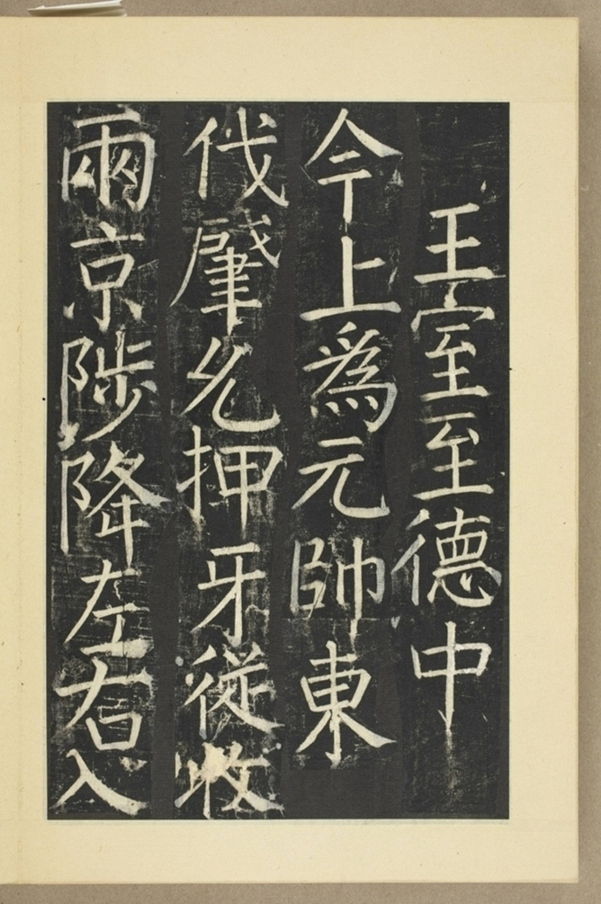 王室至德中
今上爲元帥東
伐肇允押牙從收
兩京陟降左右入